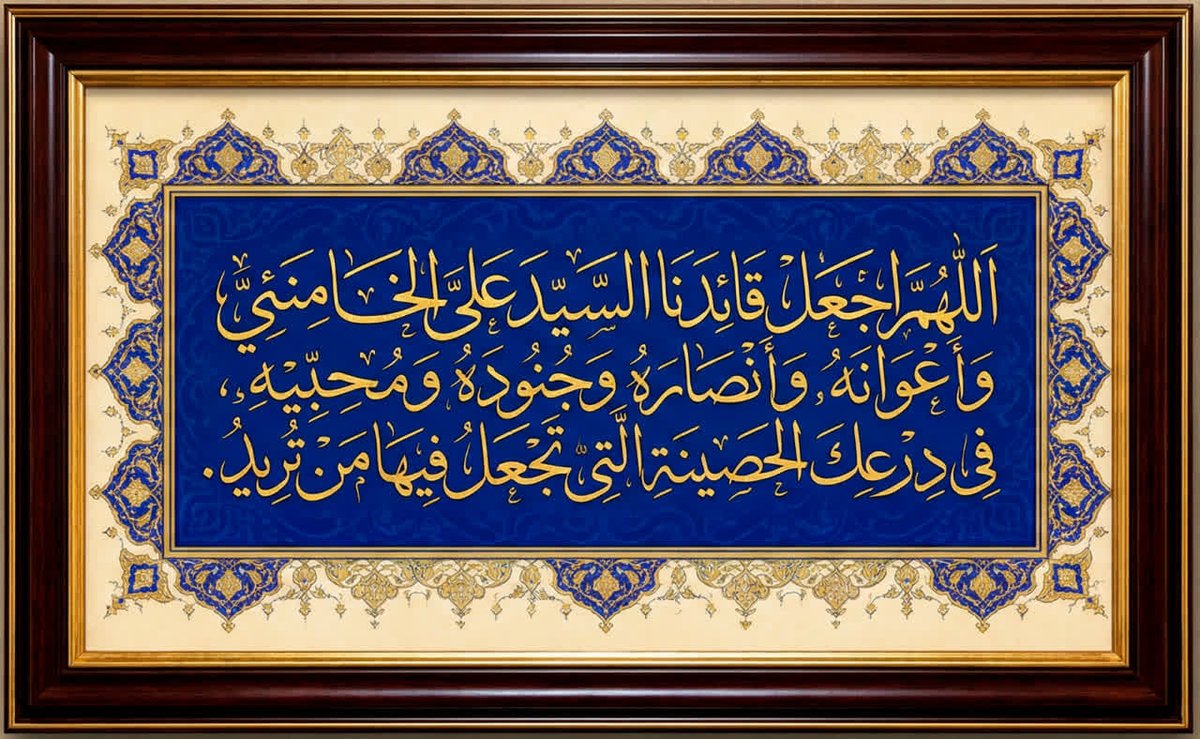 اَللّٰهُمَّ اجْعَلْ قَائِدَنَا السَّيِّدَ عَلِيَّ الْخَامِنَئِيَّ
وَأَعْوَانَهُ وَأَنْصَارَهُ وَجُنُودَهُ وَمُحِبِّيهِ،
فِي دِرْعِكَ الْحَصِينَةِ الَّتِي تَجْعَلُ فِيهَا مَنْ تُرِيدُ.